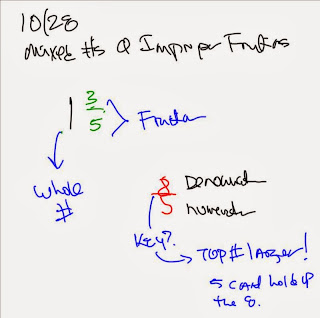 10/28
Mixed #s & Improper Fractions
1 3/5
Fraction
whole
#
8 Denominat
5 numerat
Key?
TOP # larger!
5 can't hold up
the 8.